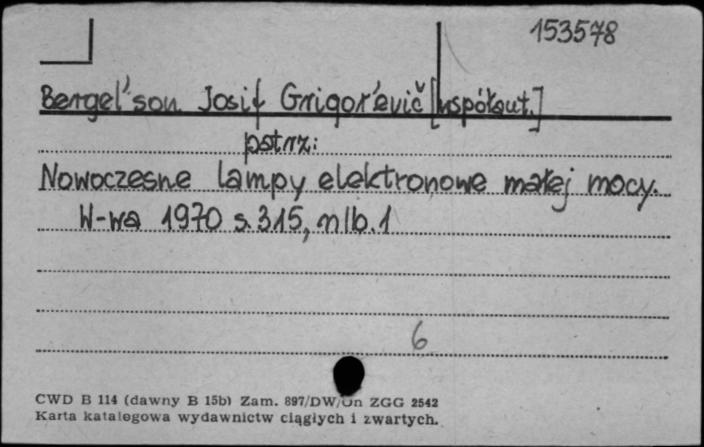 153578
Bergel'son Josif Grigor'evič [współaut.]
patrz:
Nowoczesne lampy elektronowe małej mocy.
W-wa 1970 s. 315, nlb. 1
6
CWD B 114 (dawny B 15b) Zam. 897/DW/Un ZGG 2542
Karta katalogowa wydawnictw ciągłych i zwartych.